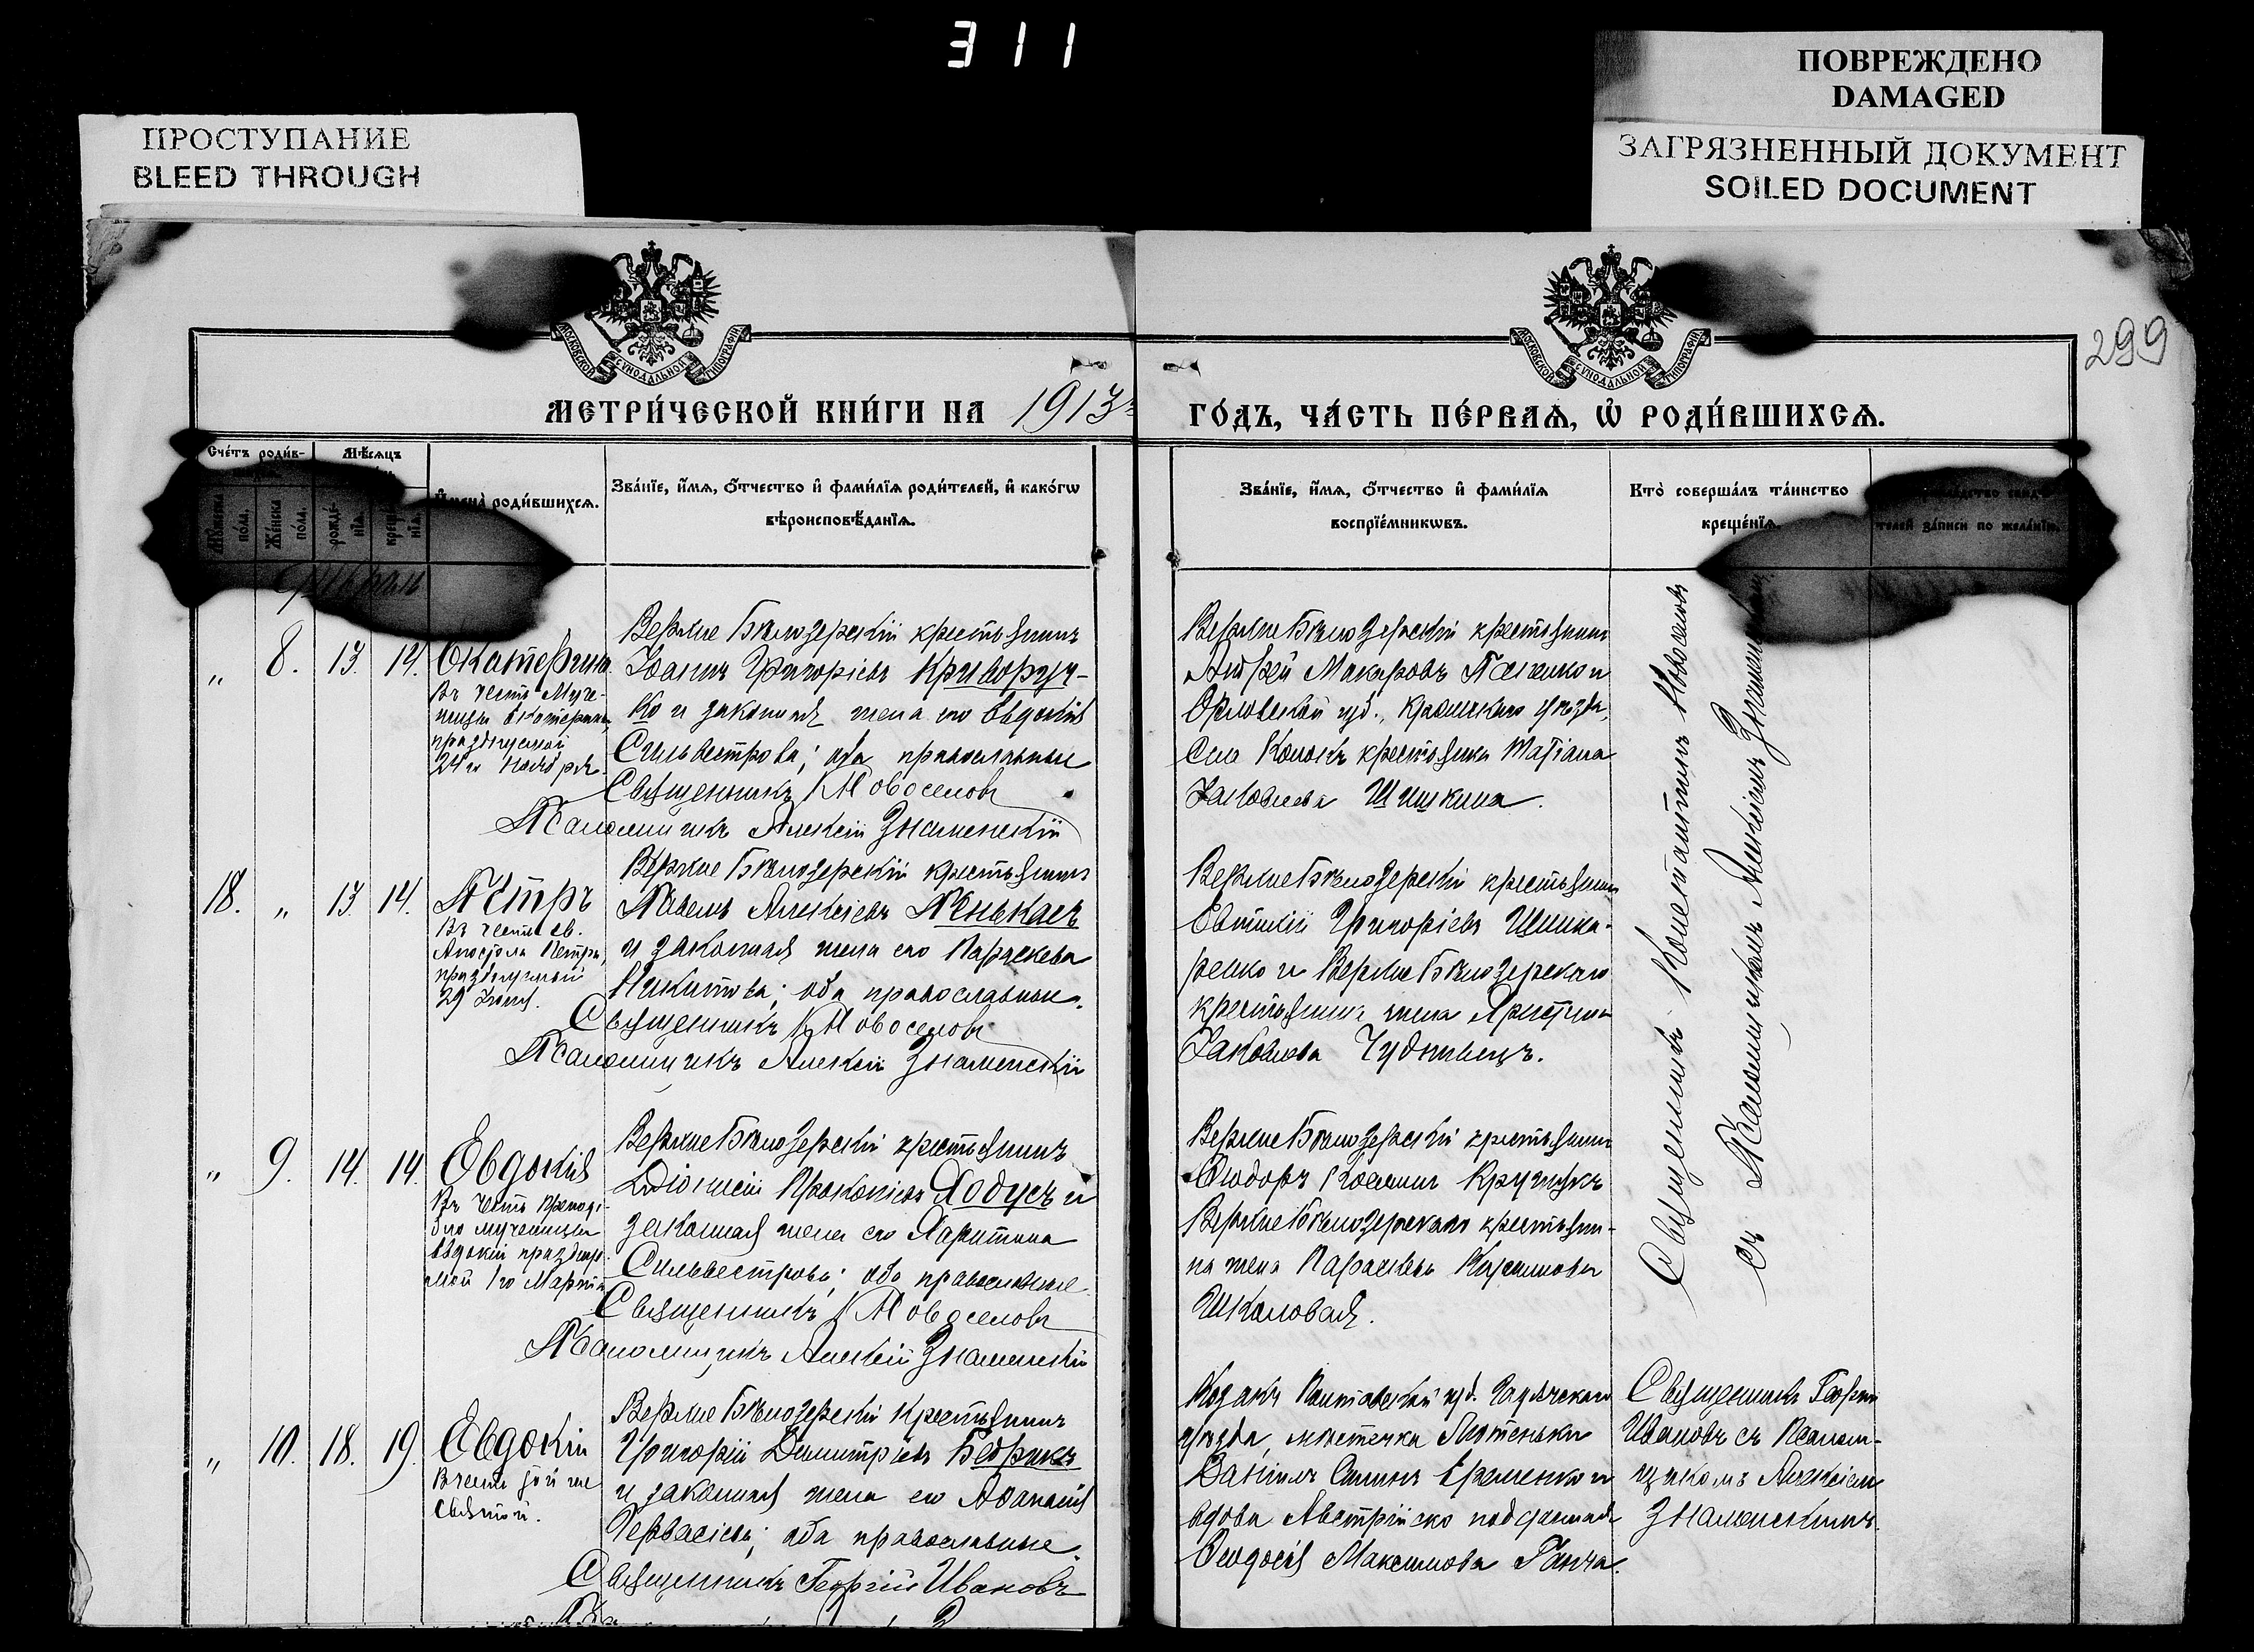 311
ПОВРЕЖДЕНО
DAMAGED
ПРОСТУПАНИЕ
BLEED THROUGH
ЗАГРЯЗНЕННЫЙ ДОКУМЕНТ
SOILED DOCUMENT
299
МОСКОВСКОЙ СУНОДАЛЬНОЙ ТИПОГРАФІИ
МОСКОВСКОЙ СУНОДАЛЬНОЙ ТИПОГРАФІИ
МЕТРИ́ЧЕСКОЙ КНИ́ГИ НА 1913 го
ГО́ДЪ, ЧА́СТЬ ПЕ́РВАѦ, Ѡ РОДИ́ВШИХСѦ.
Сче́тъ роди́в-
Мѣсѧцъ
Мꙋжеска по́ла.
Же́нска по́ла.
рожде́-нїѧ.
креще́-нїѧ.
Имена̀ роди́вшихсѧ.
Зва́нїе, и́мѧ, ѻ́тчество и фами́лїѧ роди́телей, и како́гѡ
вѣроисповѣ́данїѧ.
Зва́нїе, и́мѧ, ѻ́тчество и фами́лїѧ
воспрїе́мникѡвъ.
Кто̀ соверша́лъ та́инство
креще́нїѧ.
телей за́писи по жела́нїю.
Февраля
„ 8. 13. 14. Екатерина
Въ честь Муче-
ницы Екатерины,
празднуемой
24го Ноября.
Верхне Бѣлозерскій крестьянинъ
Іоаннъ Григоріевъ Криворуч-
ко и законная жена его Евдокія
Сильвестрова; оба православные
Священникъ К Новоселовъ
Псаломщикъ Алексій Знаменскій
Верхне Бѣлозерскій крестьянинъ
Андрей Макаровъ и
Орловской губ., уѣзда,
Села крестьянка Татіана
Іаковлева Шишкина.
Священникъ Константинъ Новоселовъ
съ Псаломщикомъ Алексіемъ Знаменскимъ
18. „ 13. 14. Петръ
Въ честь св.
Апостола Петра,
празднуемый
29 Іюня.
Верхне Бѣлозерскій крестьянинъ
Павелъ Алексіевъ Пенькаевъ
и законная жена его Параскева
Никитова; оба православные.
Священникъ К Новоселовъ
Псаломщикъ Алексій Знаменскій
Верхне Бѣлозерскій крестьянинъ
Евтихій Григоріевъ Шинка-
ренко и Верхне Бѣлозерскаго
крестьянина жена Христина
Іаковлева Чуднивецъ.
„ 9. 14. 14. Евдокія
Въ честь преподо-
бно мученицы
Евдокіи праздну-
мой 1го Марта
Верхне Бѣлозерскій крестьянинъ
Діонисій Прокопіевъ Ходусъ и
законная жена его Харитина
Сильвестрова; оба православные.
Священникъ К Новоселовъ
Псаломщикъ Алексій Знаменскій
Верхне Бѣлозерскій крестьянинъ
Ѳеодоръ Іоанновъ
Верхне Бѣлозерскаго крестьяни-
на жена Параскева
Шкаловая.
„ 10. 18. 19. Евдокія
Въ честь той же
святой.
Верхне Бѣлозерскій крестьянинъ
Григорій Димитріевъ Бедрикъ
и законная жена его Аѳанасія
Гервасіева; оба православные.
Священникъ Георгій Ивановъ
Козакъ Полтавской губ. Гадячскаго
уѣзда, мѣстечка Лютеньки
Еременко и
вдова Австрійско подданная
Ѳеодосія Максимова Ганча.
Священникъ Георгій
Ивановъ съ Псалом-
щикомъ Алексіемъ
Знаменскимъ.